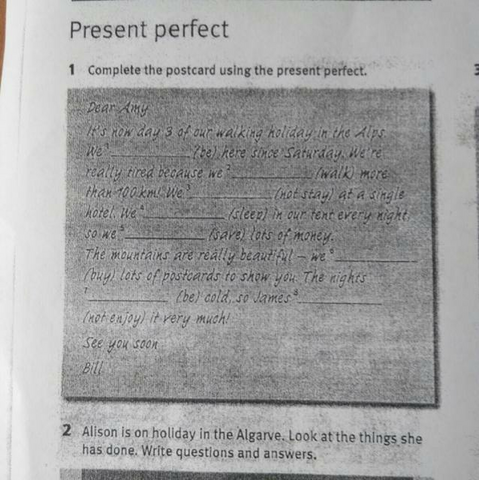 Present perfect
1 Complete the postcard using the present perfect.
Dear Amy
It's now day 3 of our walking holiday in the Alps.
We ¹__________ (be) here since Saturday. We're
really tired because we ²__________ (walk) more
than 100km! We ³__________ (not stay) at a single
hotel. We ⁴__________ (sleep) in our tent every night,
so we ⁵__________ (save) lots of money.
The mountains are really beautiful – we ⁶__________
(buy) lots of postcards to show you. The nights
⁷__________ (be) cold, so James ⁸__________
(not enjoy) it very much!
See you soon
Bill
2 Alison is on holiday in the Algarve. Look at the things she
has done. Write questions and answers.
3